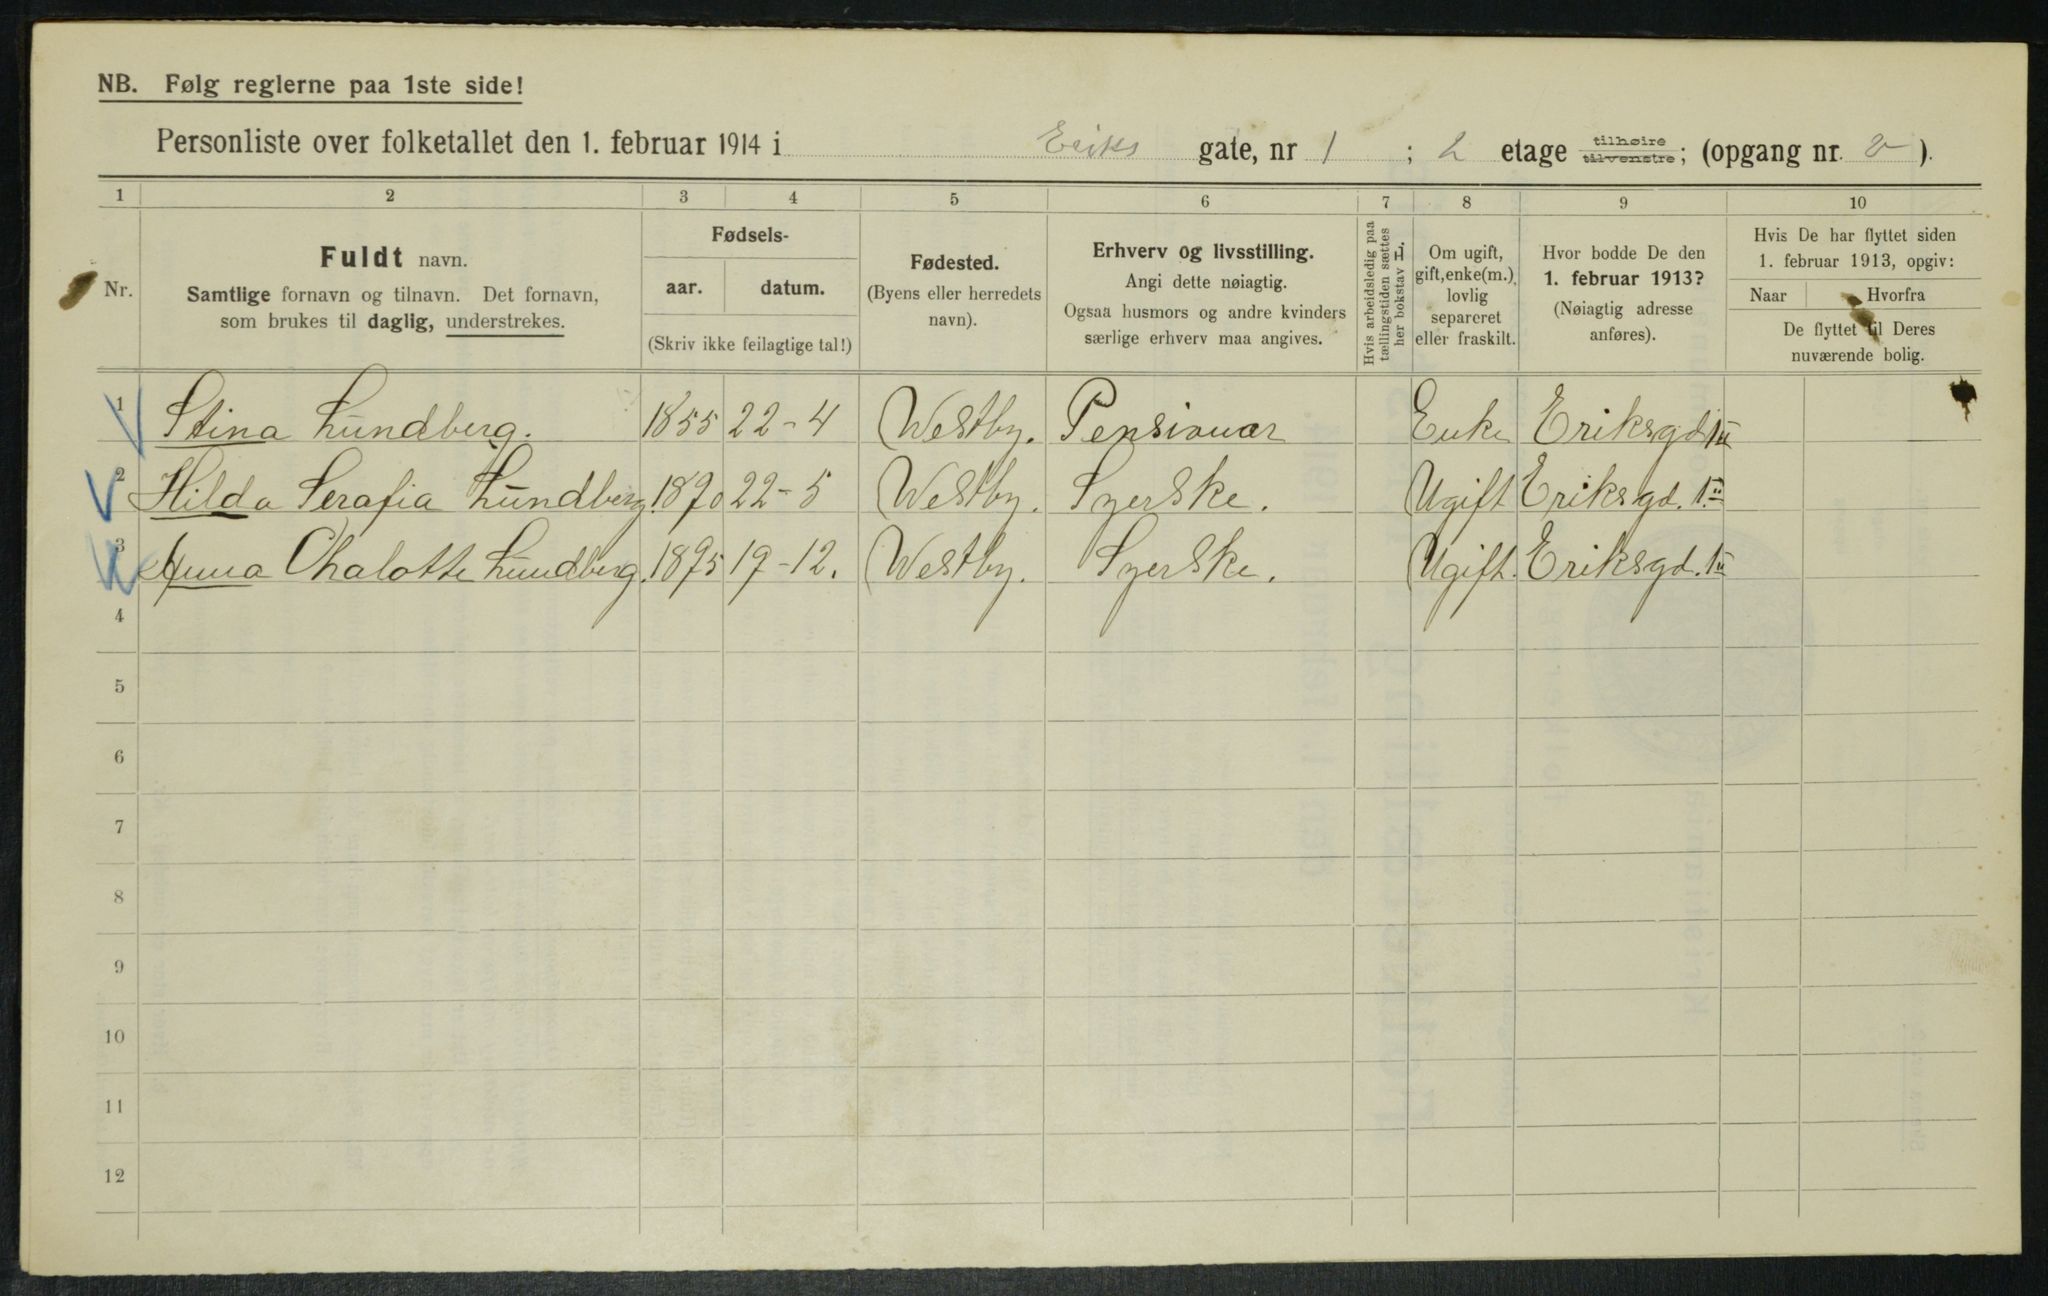 NB. Følg reglerne paa 1ste side!
Personliste over folketallet den 1. februar 1914 i Eriks gate, nr 1 ; 2 etage tilhøire tilvenstre; (opgang nr. ).
1 2 3 4 5 6 7 8 9 10
Nr.
Fuldt navn.
Samtlige fornavn og tilnavn. Det fornavn,
som brukes til daglig, understrekes.
Fødsels-
aar. datum.
(Skriv ikke feilagtige tal!)
Fødested.
(Byens eller herredets
navn).
Erhverv og livsstilling.
Angi dette nøiagtig.
Ogsaa husmors og andre kvinders
særlige erhverv maa angives.
Hvis arbeidsledig paa
tællingstiden sættes
her bokstav L.
Om ugift,
gift, enke(m.),
lovlig
separeret
eller fraskilt.
Hvor bodde De den
1. februar 1913?
(Nøiagtig adresse
anføres).
Hvis De har flyttet siden
1. februar 1913, opgiv:
Naar Hvorfra
De flyttet til Deres
nuværende bolig.
1 Stina Lundberg. 1855 22-4 Westby. Pensionær Enke Eriksgd 1 II
2 Hilda Serafia Lundberg. 1890 22-5 Westby. Syerske. Ugift Eriksgd. 1 II
3 Anna Chalotte Lundberg. 1895 19-12. Westby. Syerske. Ugift. Eriksgd. 1 II
4
5
6
7
8
9
10
11
12